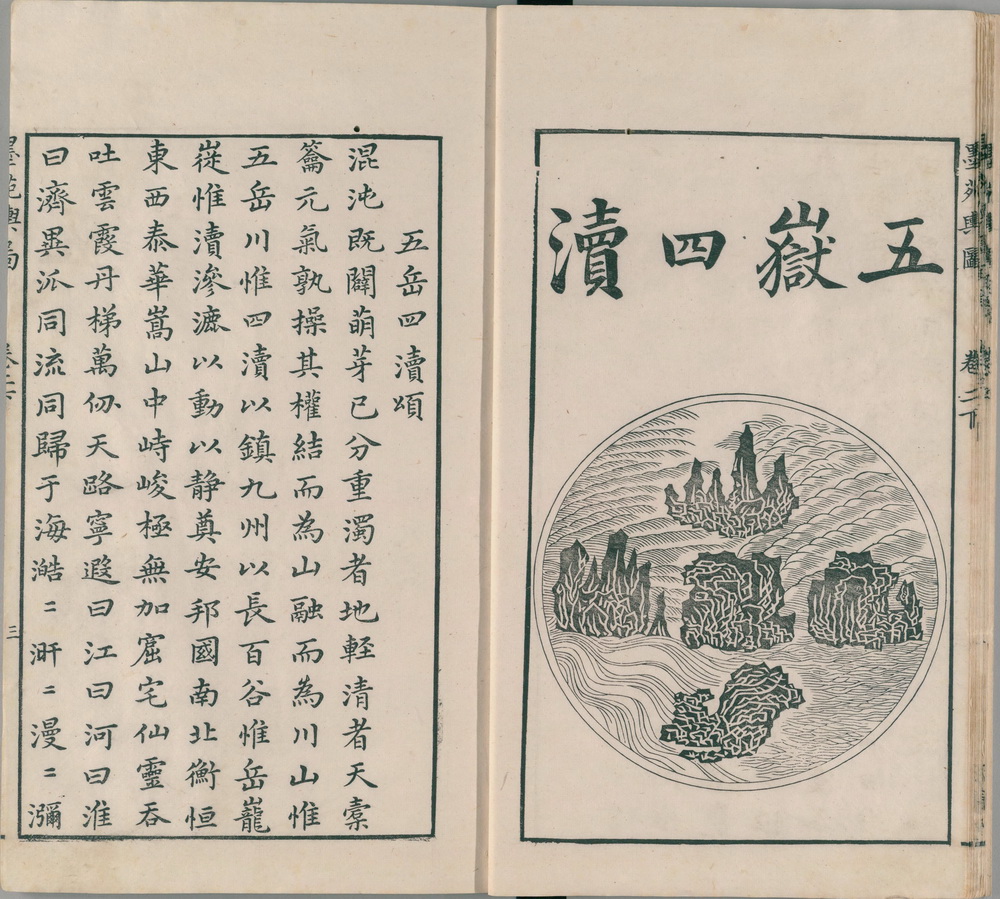 五嶽四瀆
墨苑輿圖 卷二下
五岳四瀆頌
混沌既闢萌芽已分重濁者地輕清者天橐
籥元氣孰操其權結而為山融而為川山惟
五岳川惟四瀆以鎮九州以長百谷惟岳巃
嵷惟瀆滲漉以動以静奠安邦國南北衡恒
東西泰華嵩山中峙峻極無加窟宅仙靈吞
吐雲霞丹梯萬仞天路寧遐曰江曰河曰淮
曰濟異派同流同歸于海澔〻汗〻漫〻瀰
三